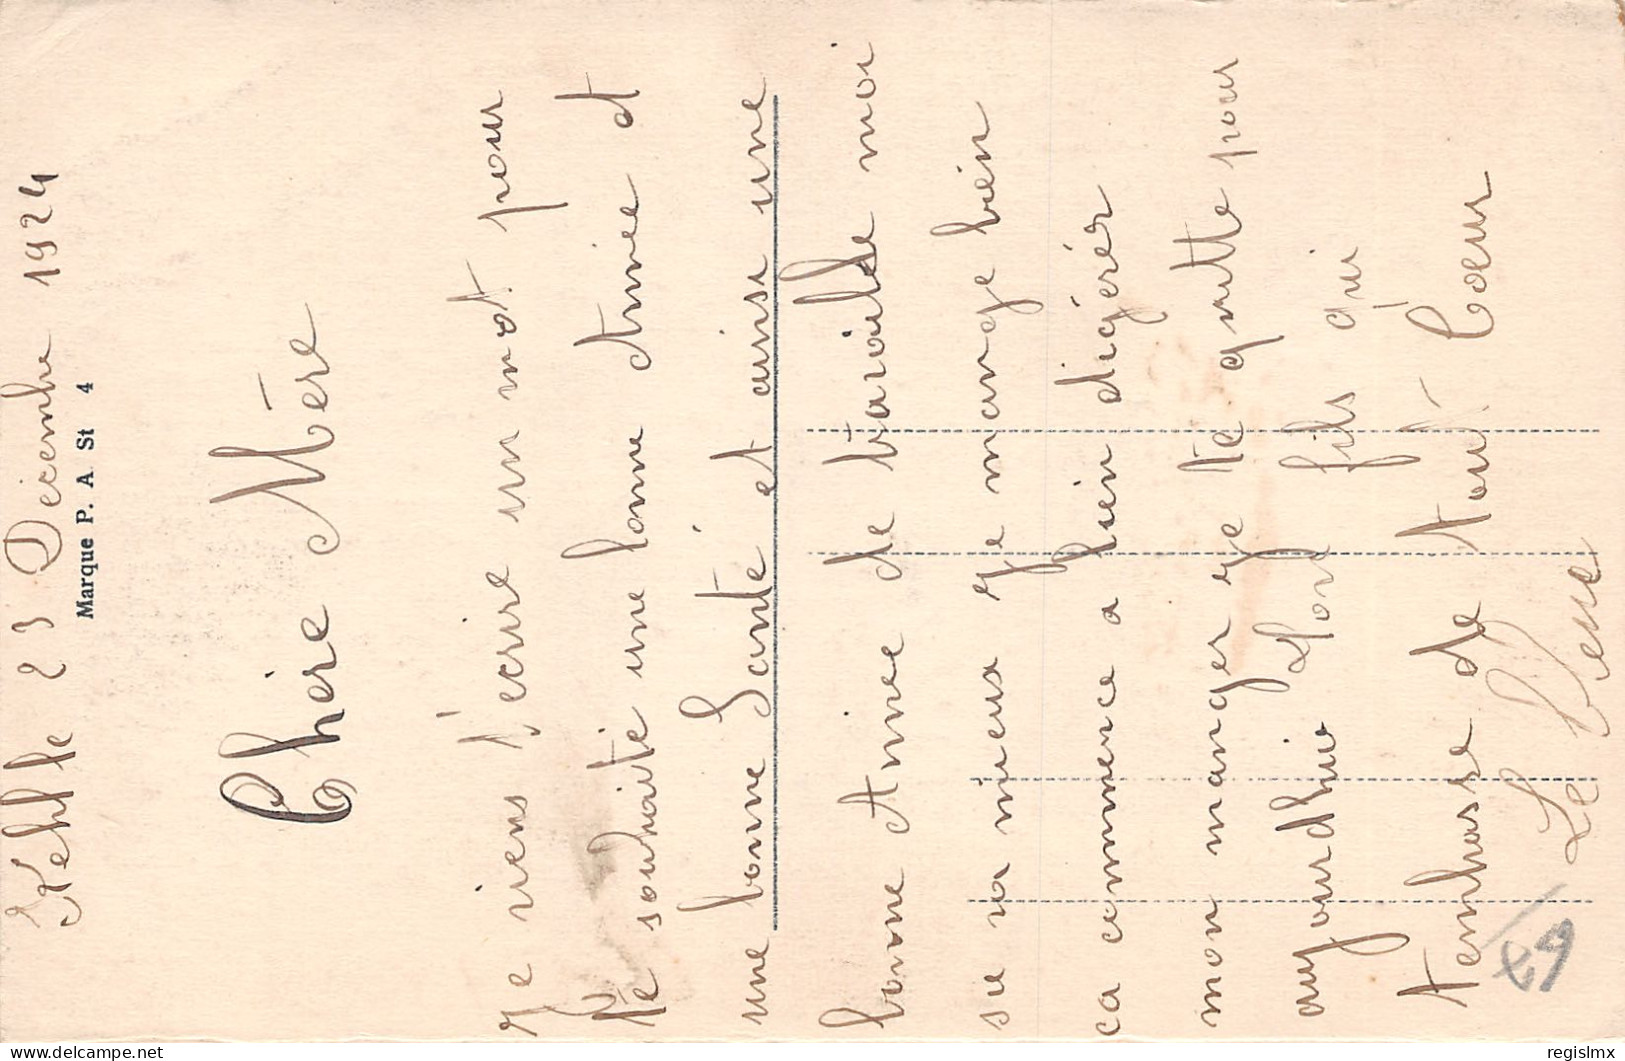 Kehl le 23 Décembre 1924
Marque P. A. St 4
Chère Mère
Je viens t'ecrire un mot pour
te souhaité une bonne Année et
une bonne Santé et ainsi une
bonne Année de travaille moi
sa va mieux je mange bien
ca commence a bien digérér
mon manger je te quitte pour
aujourdhui Ton fils qui
t'embrasse de tout Coeur
Le
regislmx
delcampe.net